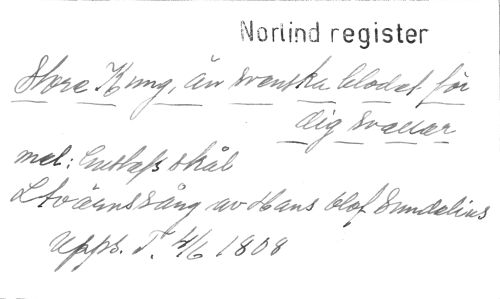 Norlind register
Store Kung, än svenska blodet för
dig svallar
mel: Gustafs skål
Ltvärnssång av Hans Olof Sundelius
Upps. T. 4/6 1808